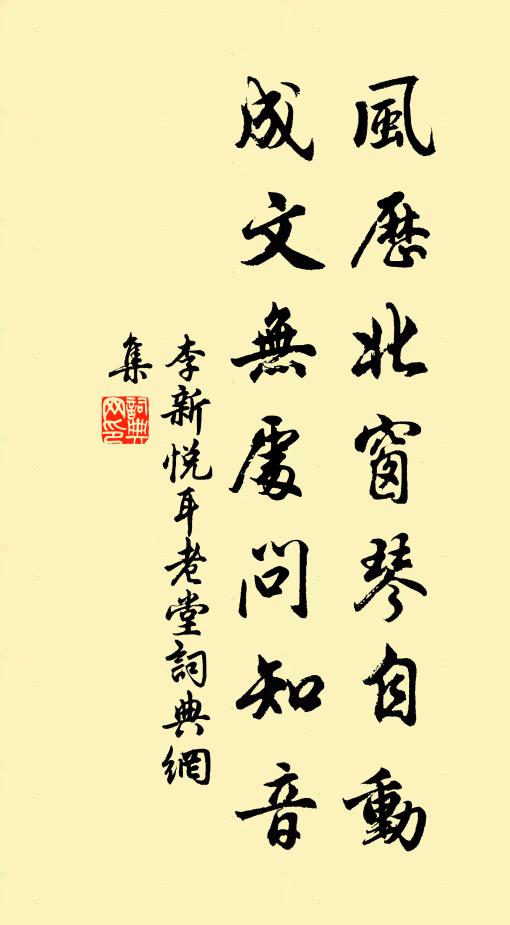 風歷北窗琴自動
成文無處問知音
李新悅耳老堂詞典網
集
詞典網印